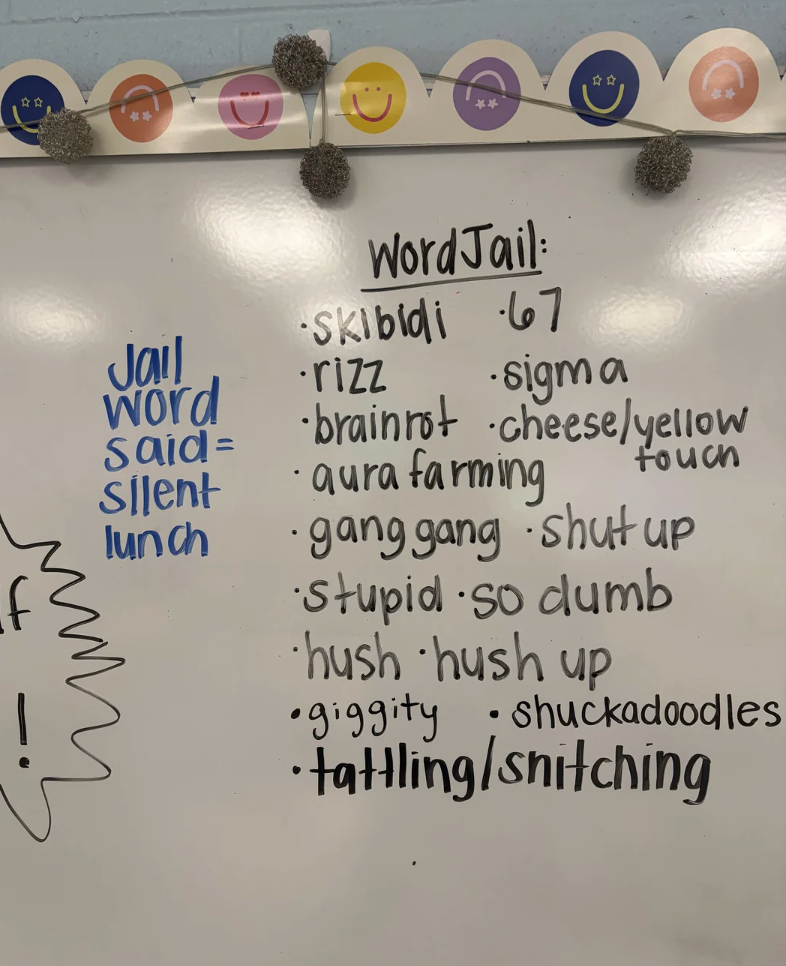 Word Jail:
• skibidi • 67
• rizz • sigma
• brainrot • cheese/yellow touch
• aura farming
• gang gang • shut up
• stupid • so dumb
• hush • hush up
• giggity • shuckadoodles
• tattling/snitching
Jail
word
said=
silent
lunch
f
!